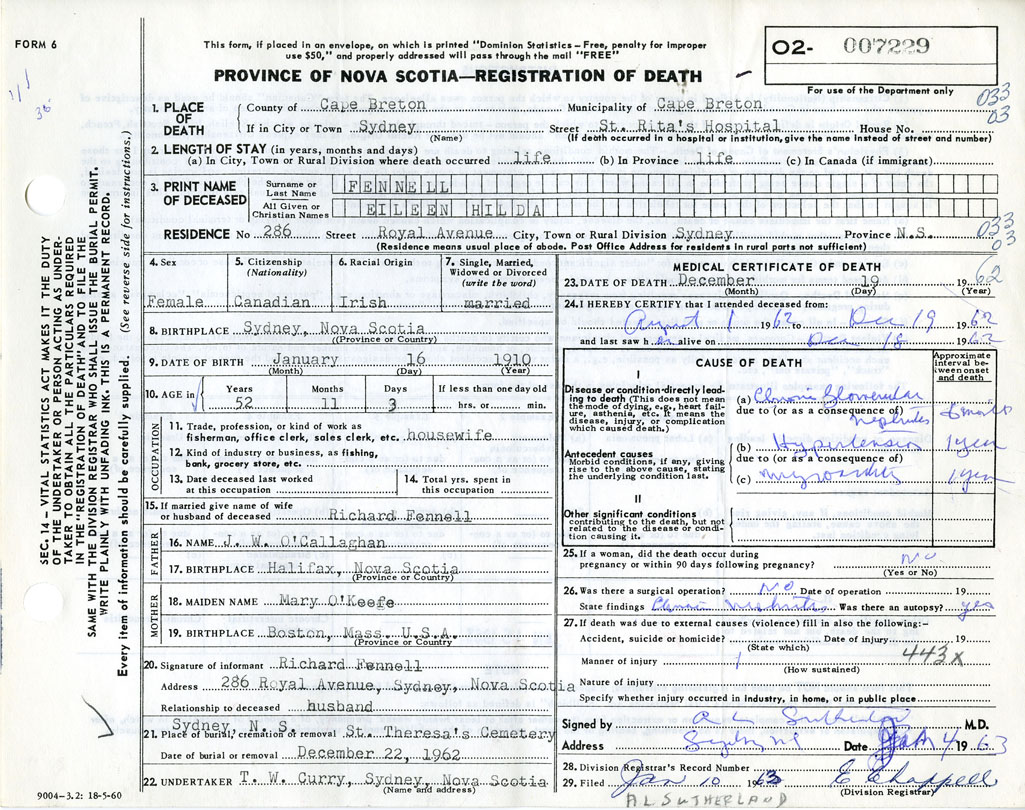 FORM 6
This form, if placed in an envelope, on which is printed "Dominion Statistics – Free, penalty for improper
use $50," and properly addressed will pass through the mail "FREE"
PROVINCE OF NOVA SCOTIA—REGISTRATION OF DEATH
02- 007229
For use of the Department only
033
03
SEC. 14 – VITAL STATISTICS ACT MAKES IT THE DUTY
OF THE UNDERTAKER OR PERSON ACTING AS UNDER-
TAKER TO OBTAIN ALL THE PARTICULARS REQUIRED
IN THE "REGISTRATION OF DEATH" AND TO FILE THE
SAME WITH THE DIVISION REGISTRAR WHO SHALL ISSUE THE BURIAL PERMIT.
WRITE PLAINLY WITH UNFADING INK. THIS IS A PERMANENT RECORD.
Every item of information should be carefully supplied. (See reverse side for instructions.)
1. PLACE OF DEATH
County of Cape Breton Municipality of Cape Breton
If in City or Town Sydney Street St. Rita's Hospital House No.
(Name) (If death occurred in a hospital or institution, give the name instead of street and number)
2. LENGTH OF STAY (in years, months and days)
(a) In City, Town or Rural Division where death occurred life (b) In Province life (c) In Canada (if immigrant)
3. PRINT NAME OF DECEASED
Surname or Last Name FENNELL
All Given or Christian Names EILEEN HILDA
033
03
RESIDENCE No 286 Street Royal Avenue City, Town or Rural Division Sydney Province N.S.
(Residence means usual place of abode. Post Office Address for residents in rural parts not sufficient)
4. Sex
Female
5. Citizenship (Nationality)
Canadian
6. Racial Origin
Irish
7. Single, Married, Widowed or Divorced (write the word)
married
8. BIRTHPLACE Sydney, Nova Scotia
(Province or Country)
9. DATE OF BIRTH January 16 1910
(Month) (Day) (Year)
10. AGE in
Years Months Days If less than one day old
52 11 3 hrs. or min.
OCCUPATION
11. Trade, profession, or kind of work as
fisherman, office clerk, sales clerk, etc. housewife
12. Kind of industry or business, as fishing,
bank, grocery store, etc.
13. Date deceased last worked
at this occupation
14. Total yrs. spent in
this occupation
15. If married give name of wife
or husband of deceased Richard Fennell
FATHER
16. NAME J. W. O'Callaghan
17. BIRTHPLACE Halifax, Nova Scotia
(Province or Country)
MOTHER
18. MAIDEN NAME Mary O'Keefe
19. BIRTHPLACE Boston, Mass. U.S.A.
(Province or Country)
20. Signature of informant Richard Fennell
Address 286 Royal Avenue, Sydney, Nova Scotia
Relationship to deceased husband
Sydney, N. S.
21. Place of burial, cremation or removal St. Theresa's Cemetery
Date of burial or removal December 22, 1962
22. UNDERTAKER T. W. Curry, Sydney, Nova Scotia
(Name and address)
9004–3.2: 18-5-60
MEDICAL CERTIFICATE OF DEATH
23. DATE OF DEATH December 19 1962
(Month) (Day) (Year)
24. I HEREBY CERTIFY that I attended deceased from:
August 1 1962 to Dec 19 1962
and last saw h er alive on Dec 18 1962
CAUSE OF DEATH
Approximate interval between onset and death
I
Disease or condition directly lead-
ing to death (This does not mean
the mode of dying, e.g., heart failure,
asthenia, etc. It means the
disease, injury, or complication
which caused death.)
(a) Chronic Glomerular
due to (or as a consequence of) Nephritis
Antecedent causes
Morbid conditions, if any, giving
rise to the above cause, stating
the underlying condition last.
(b) Hypertension 1 year
due to (or as a consequence of)
(c) 1 year
II
Other significant conditions
contributing to the death, but not
related to the disease or condi-
tion causing it.
25. If a woman, did the death occur during
pregnancy or within 90 days following pregnancy? No
(Yes or No)
26. Was there a surgical operation? NO Date of operation 19
State findings Chronic Nephritis Was there an autopsy? yes
27. If death was due to external causes (violence) fill in also the following:–
Accident, suicide or homicide? Date of injury 19
(State which)
443X
Manner of injury
(How sustained)
Nature of injury
Specify whether injury occurred in Industry, in home, or in public place
Signed by A L Sutherland M.D.
Address Sydney NS Date Jan 4 1963
28. Division Registrar's Record Number
29. Filed Jan 10 1963 E Chappell
(Division Registrar)
A L SUTHERLAND